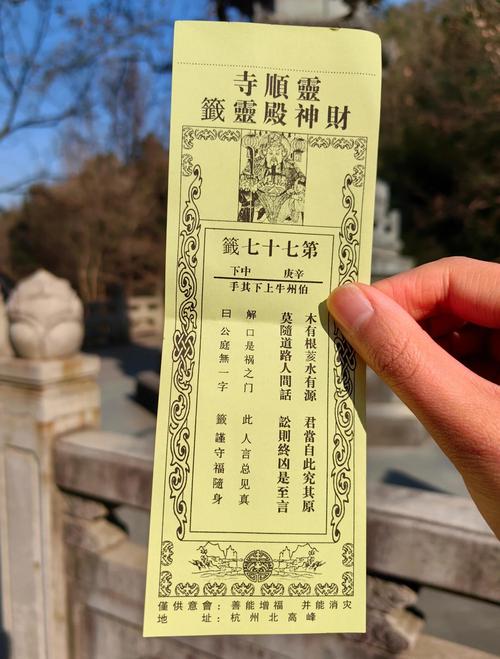 靈順寺
財神殿靈籤
第七十七籤
辛庚 中下
伯州牛上下其手
木有根荄水有源 君當自此究其原
莫隨道路人間話 訟則終凶是至言
解 口是祸之门 此人言总见真
曰 公庭無一字 籤謹守福隨身
僅供意會：善能增福 并能消灾
地 址：杭州北高峰